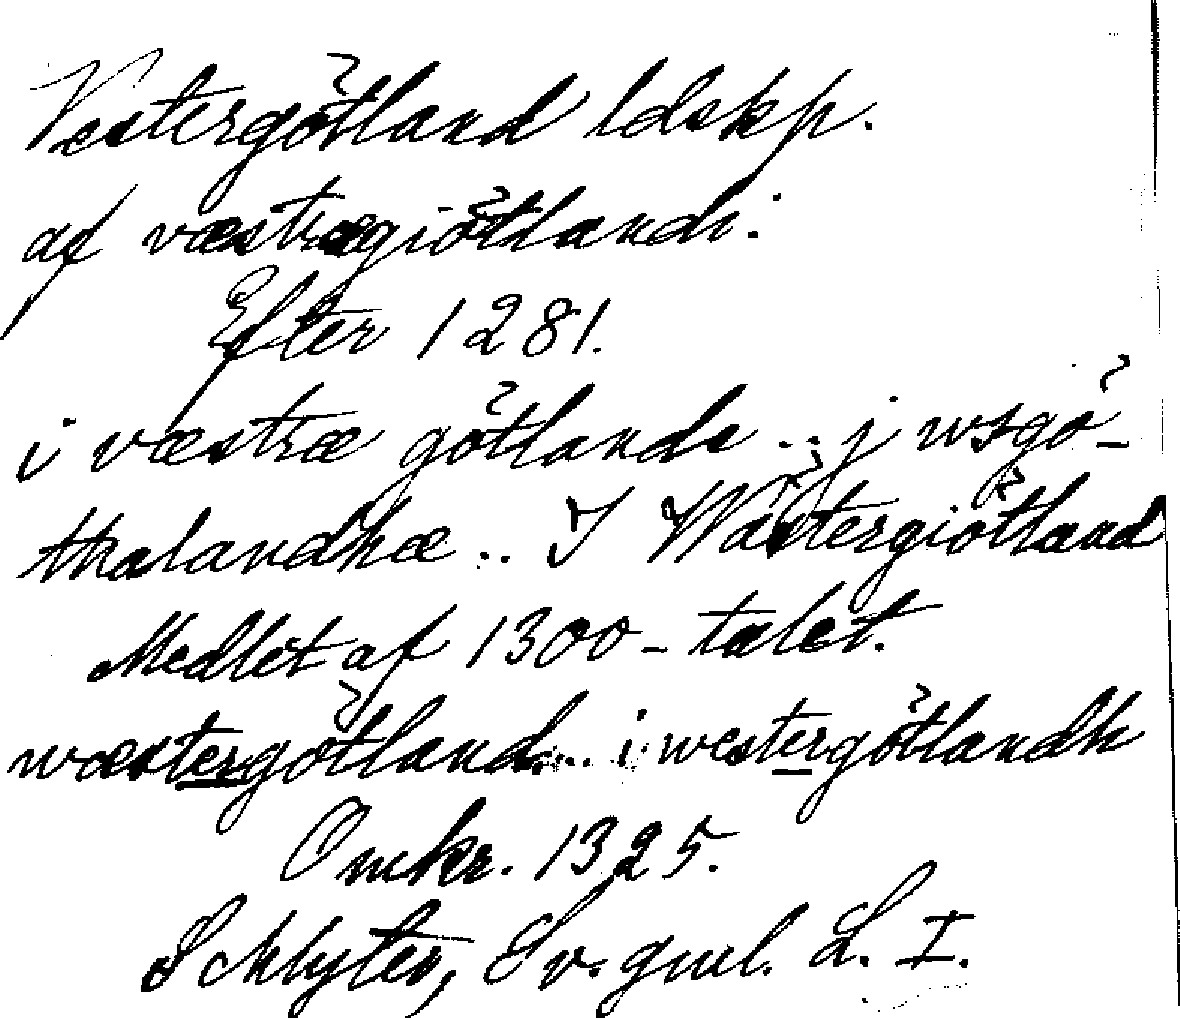 Vestergötland ldskp.
af væstrægiötlandi.
Efter 1281.
i væstræ götlande .. j wsgö-
thalandhæ .. I Wästergiötland
Medlet af 1300-talet.
wæstergötland... i westergötlandh
Omkr. 1325.
Schlyter, Sv. gml. L. I.